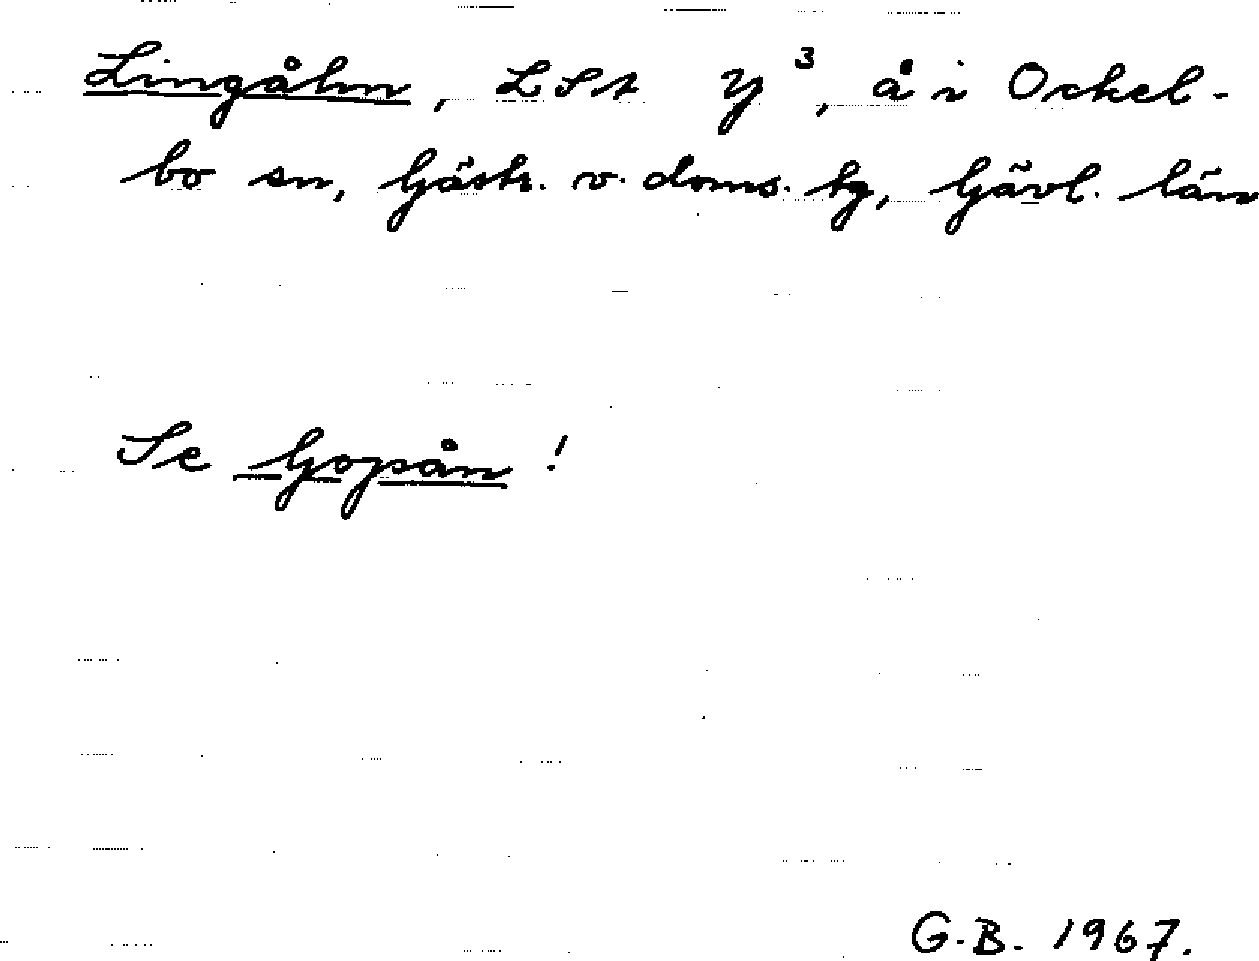 Lingåhn, LSA Y³, å i Ockel-
bo sn, Gästr. v. doms. tg, Gävl. län
Se Gopån!
G.B. 1967.